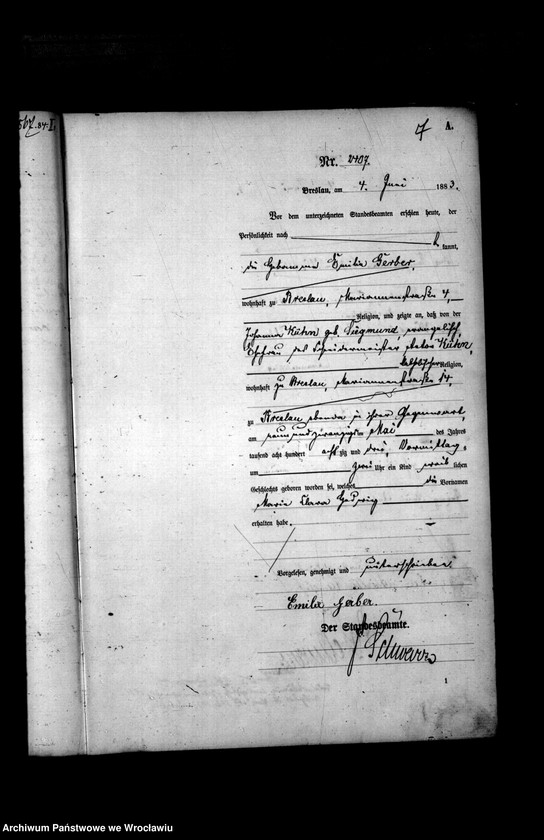 567.84.I.
7 A.
Nr. 2407.
Breslau, am 4. Juni 1883.
Vor dem unterzeichneten Standesbeamten erschien heute, der
Persönlichkeit nach kannt,
die Hebamme Emilie Gerber,
wohnhaft zu Breslau, Mariannenstraße 4,
Religion, und zeigte an, daß von der
Johanna Kühn geb. evangelisch,
Ehefrau des Schneidermeister Kühn,
katholischer Religion,
wohnhaft zu Breslau, Mariannenstraße 14,
zu Breslau ebenda in ihrer Gegenwart,
am neunundzwanzigsten Mai des Jahres
tausend acht hundert achtzig und drei, Vormittag
um zwei Uhr ein Kind weiblichen
Geschlechts geboren worden sei, welches die Vornamen
Marie Clara Hedwig
erhalten habe.
Vorgelesen, genehmigt und unterschrieben
Emilie Gerber.
Der Standesbeamte.
Schwarz
1
Archiwum Państwowe we Wrocławiu